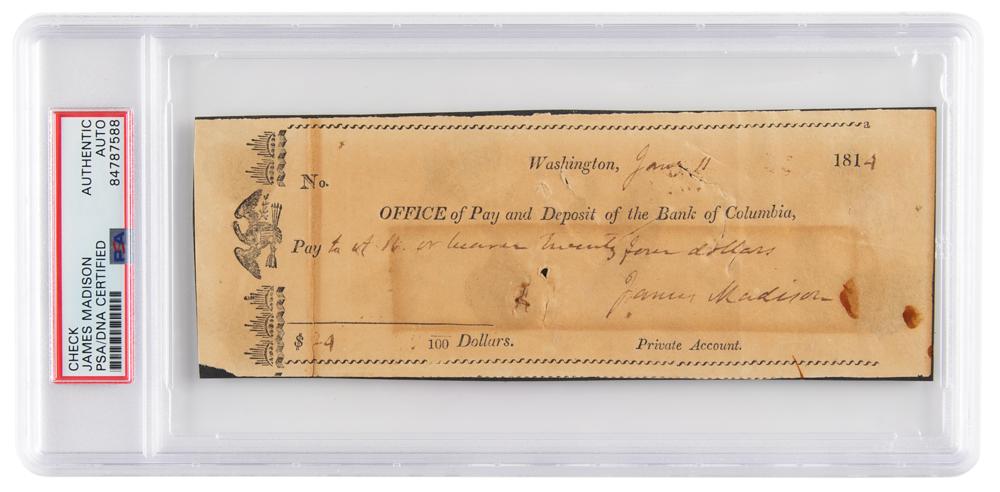 CHECK
JAMES MADISON
PSA/DNA CERTIFIED
AUTHENTIC
AUTO
84787588
PSA
a
Washington, June 11 1814
No.
OFFICE of Pay and Deposit of the Bank of Columbia,
Pay to or bearer twenty four dollars
James Madison
$ 24 100 Dollars.
Private Account.